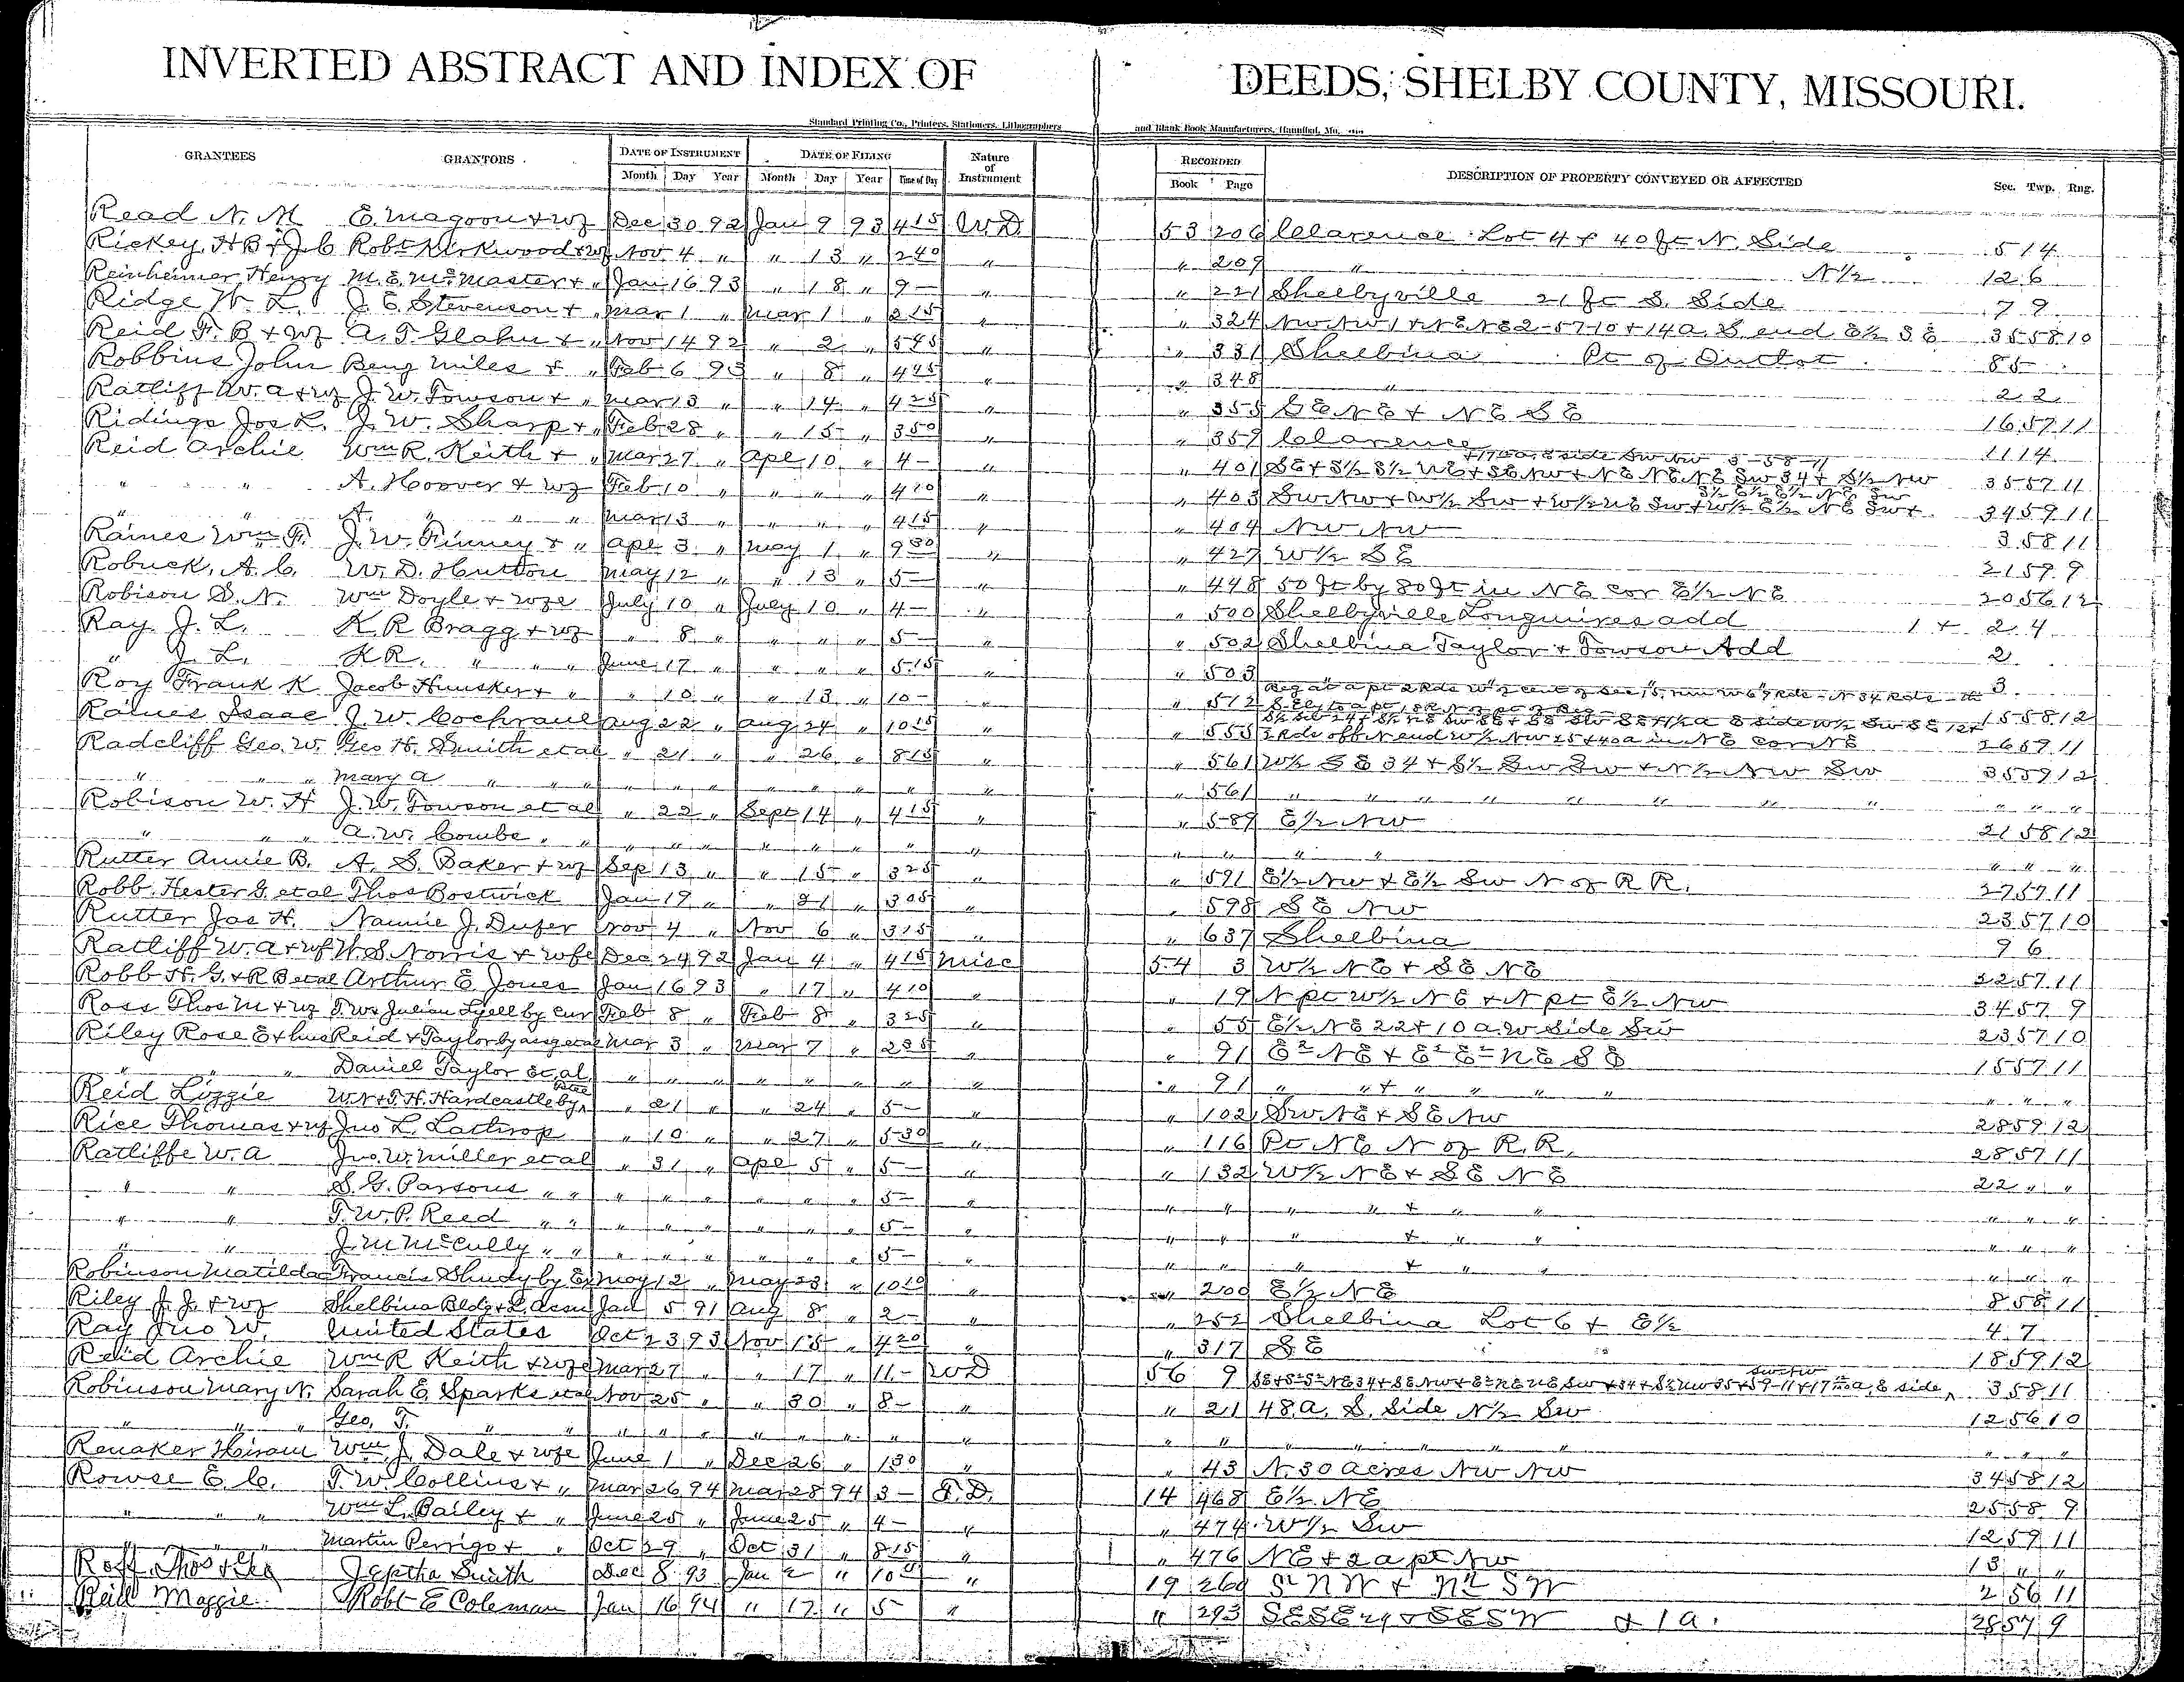 INVERTED ABSTRACT AND INDEX OF DEEDS, SHELBY COUNTY, MISSOURI.
Standard Printing Co., Printers, Stationers, Lithographers and Blank Book Manufacturers, Hannibal, Mo.
GRANTEES GRANTORS DATE OF INSTRUMENT DATE OF FILING Nature of Instrument RECORDED DESCRIPTION OF PROPERTY CONVEYED OR AFFECTED Sec. Twp. Rng.
Month Day Year Month Day Year Time of Day Book Page
Read N. M E. Magoon + wf Dec 30 92 Jan 9 93 4 15 W.D 53 206 Clarence Lot 4 + 40 ft N. Side 5 14
Rickey H B + J C Robt Kirkwood + wf Nov 4 " " 13 " 2 40 " " 209 " N 1/2 12 6
Reinheimer Henry M. E. McMaster + " Jan 16 93 " 18 " 9 - " " 221 Shelbyville 21 ft S. Side 7 9
Ridge W. L. J. E. Stevenson + " Mar 1 " Mar 1 " 2 15 " " 324 NW NW 1 + NE NE 2-57-10 + 14 a. S. end E 1/2 SE 35 58 10
Reid F. B + wf A. T. Glahn + " Nov 14 92 " 2 " 5 45 " " 331 Shelbina Pt of Outlot 85
Robbins John Benj Miles + " Feb 6 93 " 8 " 4 45 " " 348 " 2 2
Ratliff W. A + wf J. W. Towson + " Mar 13 " " 14 " 4 25 " " 355 SE NE + NE SE 16 57 11
Ridings Jos L. J. W. Sharp + " Feb 28 " " 15 " 3 50 " " 359 Clarence 11 14
Reid Archie Wm R. Keith + " Mar 27 " Apl 10 " 4 - " " 401 SE + S 1/2 S 1/2 NE + SE NW + NE NE NE SW 34 + S 1/2 NW 35 57 11
" " A. Hoover + wf Feb 10 " " " " 4 10 " " 403 SW NW + W 1/2 SW + W 1/2 NE SW + W 1/2 E 1/2 NE SW + 34 59 11
" " A. " " " Mar 13 " " " " 4 15 " " 404 NW NW 3 58 11
Raines Wm F. J. W. Finney + " Apl 3 " May 1 " 9 30 " " 427 W 1/2 SE 21 59 9
Robuck, A. C. W. D. Hutton May 12 " " 13 " 5 - " " 448 50 ft by 80 ft in NE cor E 1/2 NE 20 56 12
Robison S. N. Wm Doyle + wfe July 10 " July 10 " 4 - " " 500 Shelbyville Longmires add 1 + 2 4
Ray J. L. K R Bragg + wf " 8 " " " " 5 - " " 502 Shelbina Taylor + Towson Add 2
" J. L. K R. " " " June 17 " " " " 5 15 " " 503 3
Roy Frank K Jacob Hunsker + " " 10 " " 13 " 10 - " " 512 15 58 12
Raines Isaac J. W. Cochrane Aug 22 " Aug 24 " 10 15 " " 555 26 59 11
Radcliff Geo. W. Geo H. Smith et al " 21 " " 26 " 8 15 " " 561 W 1/2 SE 34 + S 1/2 SW SW + N 1/2 NW SW 35 59 12
" " " Mary A " " " " " " " " " " " 561 " " " " " " " " " " "
Robison W. H J. W. Towson et al " 22 " Sept 14 " 4 15 " " 589 E 1/2 NW 21 58 12
" " " A. W. Combe " " " " " " " " " " " " " " " " "
Rutter Annie B. A. S. Baker + wf Sep 13 " " 15 " 3 25 " " 591 E 1/2 NW + E 1/2 SW N of R R. 27 57 11
Robb Hester G. et al Thos Bostwick Jan 19 " " 21 " 3 05 " " 598 SE NW 23 57 10
Rutter Jas H. Nannie J. Dufer Nov 4 " Nov 6 " 3 15 " " 637 Shelbina 9 6
Ratliff W. A + wf W. S. Norris + wfe Dec 24 92 Jan 4 " 4 15 Misc 54 3 W 1/2 NE + SE NE 22 57 11
Robb H. G. + R B et al Arthur E Jones Jan 16 93 " 17 " 4 10 " " 19 N pt W 1/2 NE + N pt E 1/2 NW 34 57 9
Ross Thos M + wf T. W. Julian Lyell by Cur Feb 8 " Feb 8 " 3 25 " " 55 E 1/2 NE 22 + 10 a. W Side SW 23 57 10
Riley Rose E + hus Reid + Taylor by asg et al Mar 3 " Mar 7 " 2 35 " " 91 E 2 NE + E 2 E 2 NE SE 15 57 11
" " " Daniel Taylor et al " " " " " " " " " 91 " " + " " " " " " "
Reid Lizzie W. N + T. H. Hardcastle by " 21 " " 24 " 5 - " " 102 SW NE + SE NW 28 59 12
Rice Thomas + wf Jno L. Lathrop " 10 " " 27 " 5 30 " " 116 Pt NE N of R. R. 28 57 11
Ratliffe W. A Jno. W. Miller et al " 31 " Apl 5 " 5 - " " 132 W 1/2 NE + SE NE 22 " "
" " S. G. Parsons " " " " " " " " 5 - " " " " " + " " " " "
" " T. W. P. Reed " " " " " " " " 5 - " " " " + " " " " "
" " J. M McCully " " " " " " " " 5 - " " " " + " " " " "
Robinson Matilda Francis Shudy by Ex May 12 " May 23 " 10 10 " " 200 E 1/2 NE 8 58 11
Riley J. J. + wf Shelbina Bldg + L. Assn Jan 5 91 Aug 8 " 2 - " " 252 Shelbina Lot 6 + E 1/2 4 7
Ray Jno W. United States Oct 23 93 Nov 15 " 4 20 " " 317 SE 18 59 12
Reid Archie Wm R Keith + wfe Mar 27 " " 17 " 11 - WD 56 9 3 58 11
Robinson Mary N. Sarah E. Sparks et al Nov 25 " " 30 " 8 - " " 21 48 a. S. Side N 1/2 SW 12 56 10
" " " Geo. T. " " " " " " " " " " " " " " " " " " "
Renaker Hiram Wm J. Dale + wfe June 1 " Dec 26 " 1 30 " " 43 N. 30 acres NW NW 34 58 12
Rowse E. C. T. W. Collins + " Mar 26 94 Mar 28 94 3 - T. D. 14 468 E 1/2 NE 25 58 9
" " " Wm L. Bailey + " June 25 " June 25 " 4 - " " 474 W 1/2 SW 12 59 11
" " " Martin Perrigo + " Oct 29 " Oct 31 " 8 15 " " 476 NE + 2 a pt NW 13 " "
Roff Thos + Geo Jeptha Smith Dec 8 93 Jan 2 " 10 " 19 260 S 2 NW + N 2 SW 2 56 11
Reid Maggie Robt E Coleman Jan 16 94 " 17 " 5 " " 293 SE SE 29 + SE SW + 1 a. 28 57 9